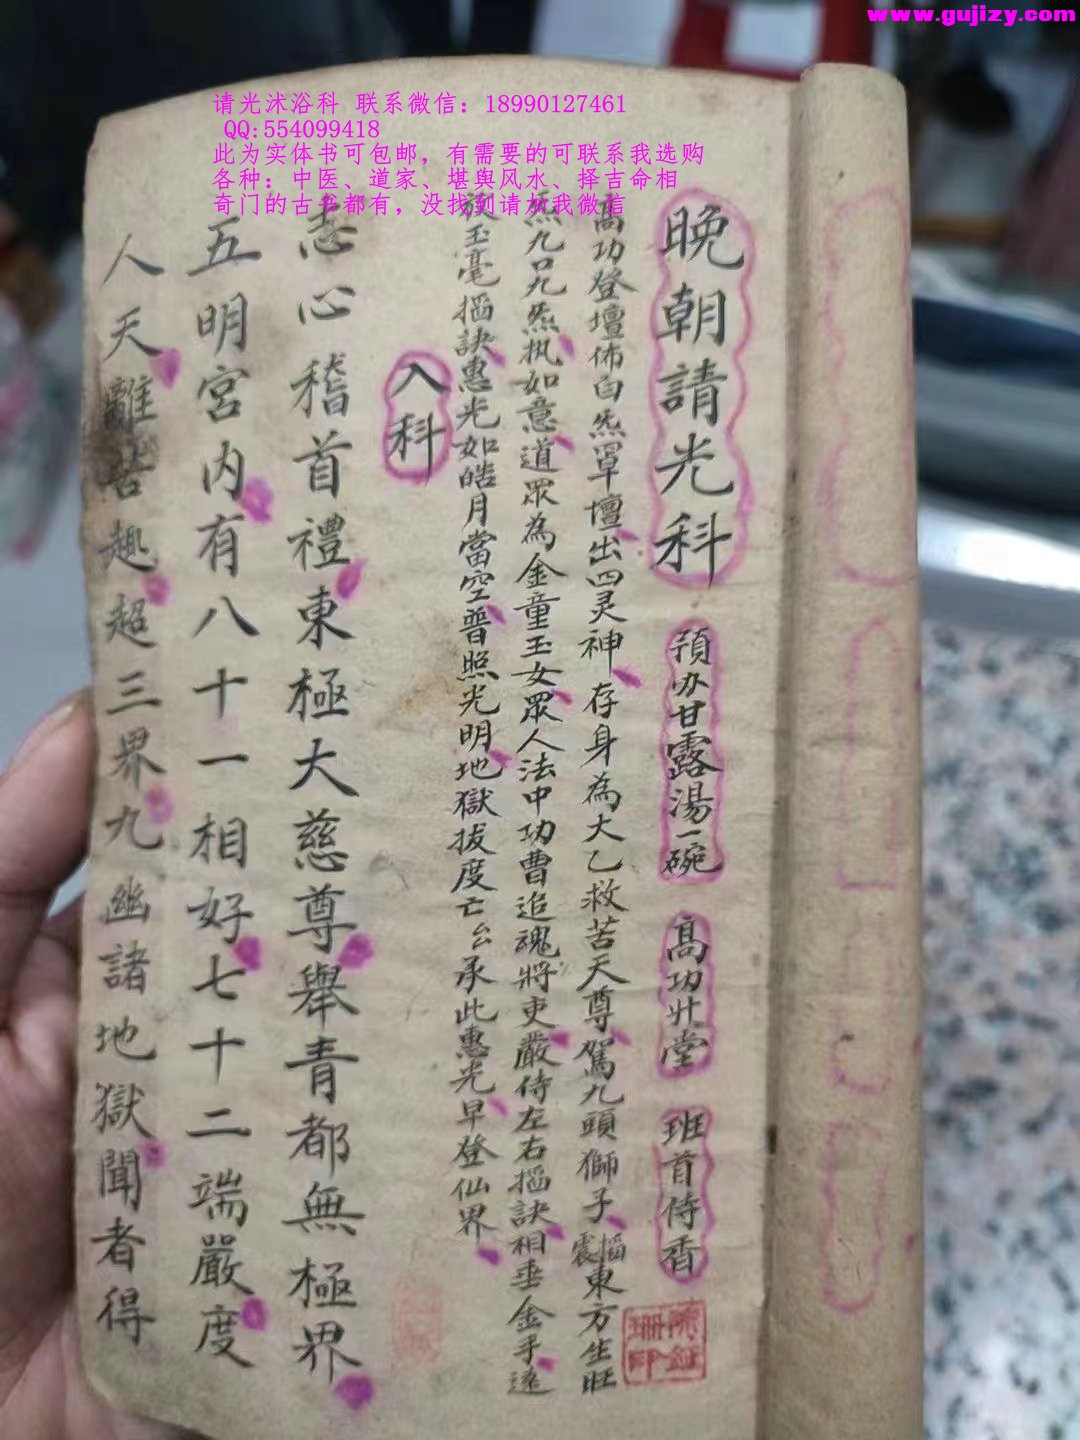 www.gujizy.com
请光沭浴科 联系微信：18990127461
QQ:554099418
此为实体书可包邮，有需要的可联系我选购
各种：中医、道家、堪舆风水、择吉命相
奇门的古书都有，没找到请加我微信
晚朝請光科 預办甘露湯一碗 高功廾堂 班首侍香
高功登壇佈白炁罩壇出四灵神存身為大乙救苦天尊駕九頭獅子搯震東方生旺
炁九口九炁执如意道眾為金童玉女眾人法中功曹追魂將吏嚴侍左右搯訣相垂金手遠
放玉毫搯訣惠光如皓月當空普照光明地獄拔度亡公承此惠光早登仙界
入科
志心稽首禮東極大慈尊舉青都無極界
五明宮内有八十一相好七十二端嚴度
人天離苦趣超三界九幽諸地獄聞者得